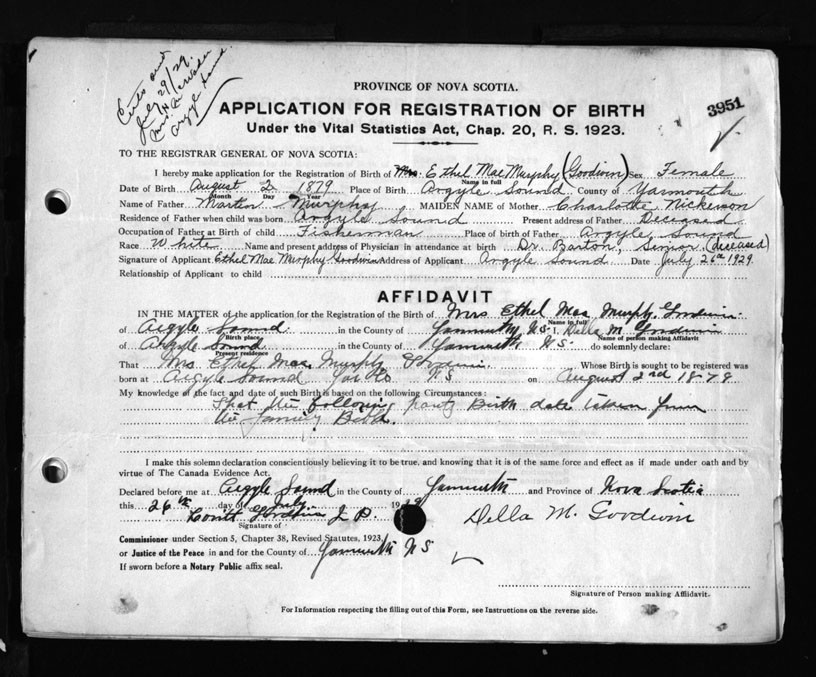 Certs out
July 29/29
Mrs
Argyle Sound
PROVINCE OF NOVA SCOTIA.
APPLICATION FOR REGISTRATION OF BIRTH
3951
Under the Vital Statistics Act, Chap. 20, R. S. 1923.
TO THE REGISTRAR GENERAL OF NOVA SCOTIA:
I hereby make application for the Registration of Birth of Mrs. Ethel Mae Murphy (Goodwin) Sex Female
Name in full
Date of Birth August 2 1879 Place of Birth Argyle Sound County of Yarmouth
Month Day Year
Name of Father Martin Murphy MAIDEN NAME of Mother Charlotte Nickerson
Residence of Father when child was born Argyle Sound Present address of Father Deceased
Occupation of Father at Birth of child Fisherman Place of birth of Father Argyle Sound
Race White Name and present address of Physician in attendance at birth Dr. Barton, Senior (deceased)
Signature of Applicant Ethel Mae Murphy Goodwin Address of Applicant Argyle Sound Date July 26th 1929
Relationship of Applicant to child
AFFIDAVIT
IN THE MATTER of the application for the Registration of the Birth of Mrs Ethel Mae Murphy Goodwin
Name in full
of Argyle Sound in the County of Yarmouth, N.S. I, Della M Goodwin
Birth place Name of person making Affidavit
of Argyle Sound in the County of Yarmouth N.S. do solemnly declare:
Present residence
That Mrs Ethel Mae Murphy Goodwin Whose Birth is sought to be registered was
born at Argyle Sound Yar Co N S on August 2nd 1879
My knowledge of the fact and date of such Birth is based on the following Circumstances:
That the following party Birth date taken from
the family Bible.
I make this solemn declaration conscientiously believing it to be true, and knowing that it is of the same force and effect as if made under oath and by
virtue of The Canada Evidence Act.
Declared before me at Argyle Sound in the County of Yarmouth and Province of Nova Scotia
this 26th day of July 1929
Goodwin J. P. Della M. Goodwin
Signature of
Commissioner under Section 5, Chapter 38, Revised Statutes, 1923,
or Justice of the Peace in and for County of Yarmouth N S
If sworn before a Notary Public affix seal.
Signature of Person making Affidavit.
For Information respecting the filling out of this Form, see Instructions on the reverse side.